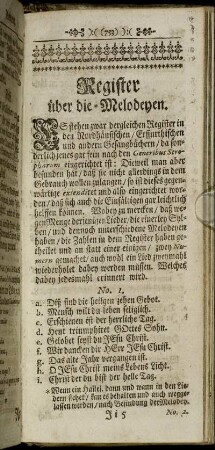 ):( (753) ):(
Register
über die Melodeyen.
ES stehen zwar dergleichen Register in
den Nordhäusischen, Erffurthischen
und andern Gesangbüchern, da son-
derlich jenes gar fein nach den Concordius Sera-
phorum eingerichtet ist: Dieweil man aber
befunden hat, daß sie nicht allerdings in dem
Gebrauch wollen zulangen, so ist dieses gegen-
wärtige extendiret und also eingerichtet wor-
den, daß sich auch die Einfältigen gar leichtlich
helffen können. Wobey zu mercken, daß we-
gen Menge derjenigen Lieder, die einerley Syl-
ben, und dennoch unterschiedene Melodeyen
haben, die Zahlen in dem Register haben ge-
theilet und an statt einer einigen, zwey Nu-
mern gemachet, auch wohl ein Lied zweymahl
wiederholet dabey werden müssen. Welches
dabey jedesmahl erinnert wird.
No. 1.
a. Diß sind die heilgen zehen Gebot.
b. Mensch wilt du leben seliglich.
c. Erschienen ist der herrliche Tag.
d. Heut triumphiret GOttes Sohn.
e. Gelobet seyst du JEsu Christ.
f. Wir dancken dir HErr JEsu Christ.
g. Das alte Jahr vergangen ist.
h. O JEsu Christ meins Lebens Licht.
i. Christ der du bist der helle Tag.
* Wenn ein Hallel. dann und wann in den Lie-
dern stehet, kan es behalten und auch wegge-
lassen werden, nach Beschaffung der Melodey.
Ji 5
No. 2.